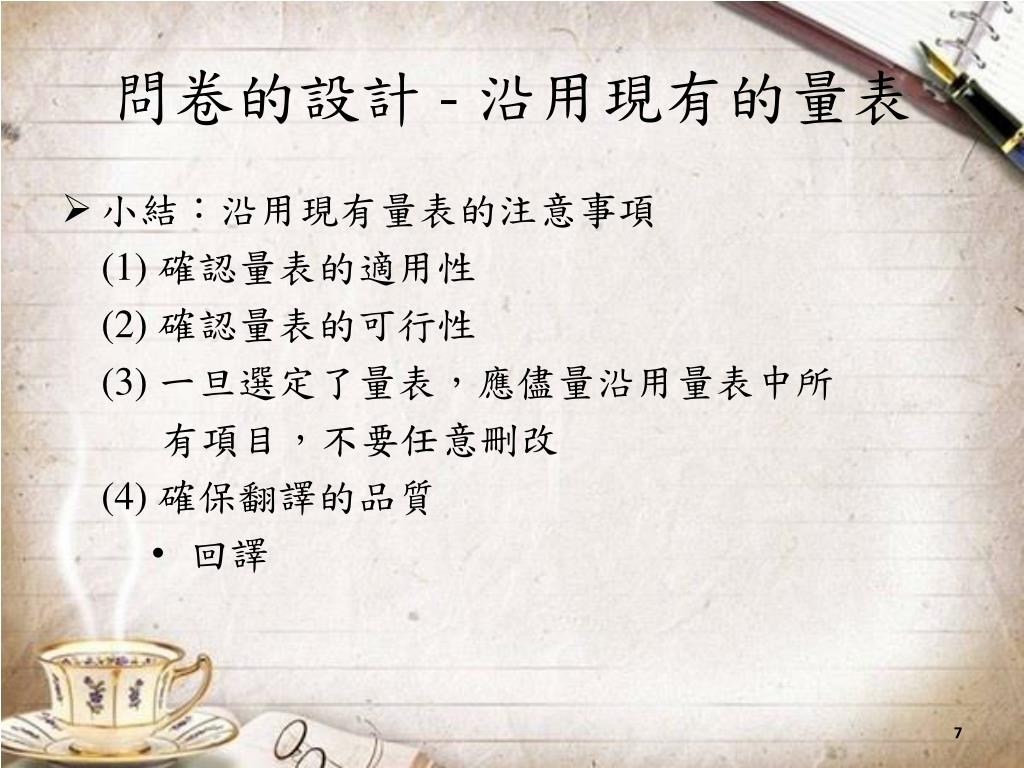 問卷的設計 - 沿用現有的量表
➢ 小結：沿用現有量表的注意事項
(1) 確認量表的適用性
(2) 確認量表的可行性
(3) 一旦選定了量表，應儘量沿用量表中所
有項目，不要任意刪改
(4) 確保翻譯的品質
• 回譯
7